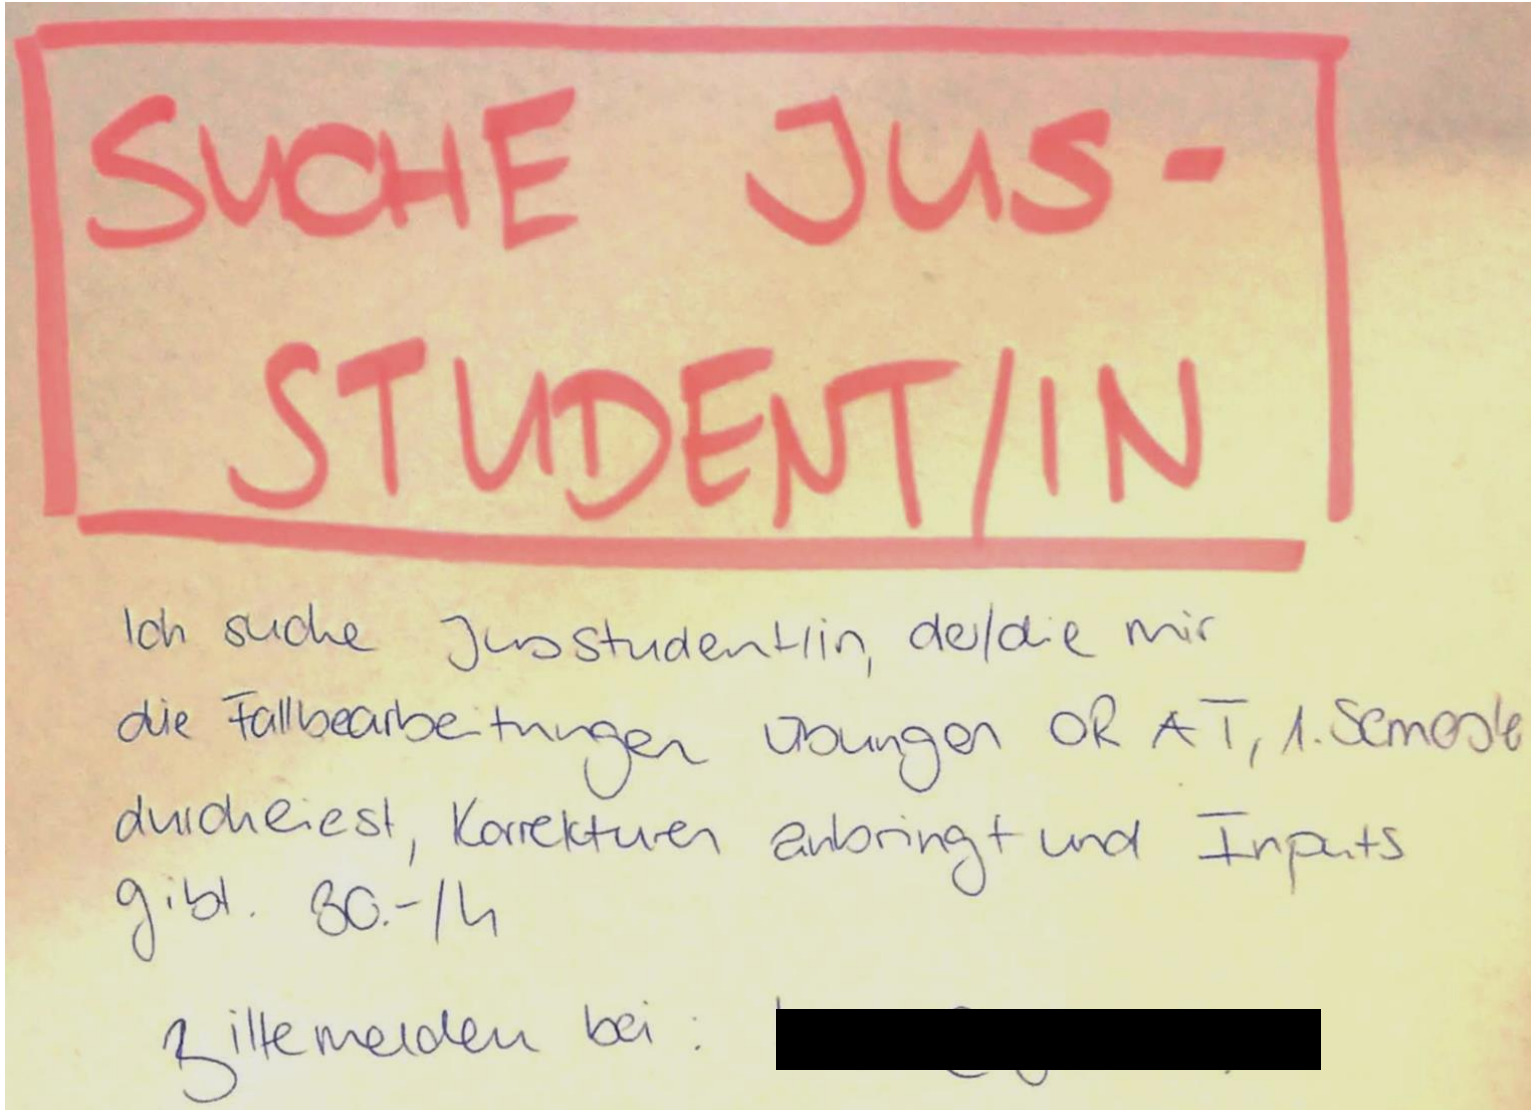 SUCHE JUS-
STUDENT/IN
Ich suche Jusstudent/in, der/die mir
die Fallbearbeitungen Übungen OR AT, 1. Semester
durchliest, Korrekturen anbringt und Inputs
gibt. 30.-/h
Bitte melden bei: